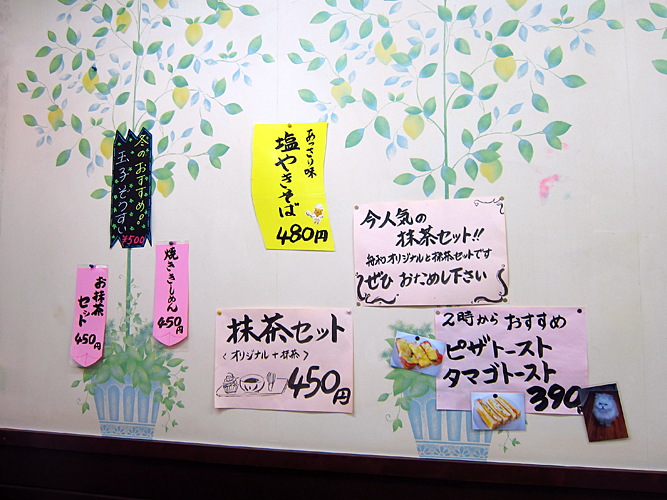 冬のおすすめ!!
玉子ぞうすい
¥500
お抹茶
セット
450円
焼ききしめん
450円
あっさり味
塩やきそば
480円
抹茶セット
<オリジナル+抹茶>
450円
今人気の
抹茶セット!!
オリジナルと抹茶セットです
ぜひ おためし下さい
2時から おすすめ
ピザトースト
タマゴトースト
390